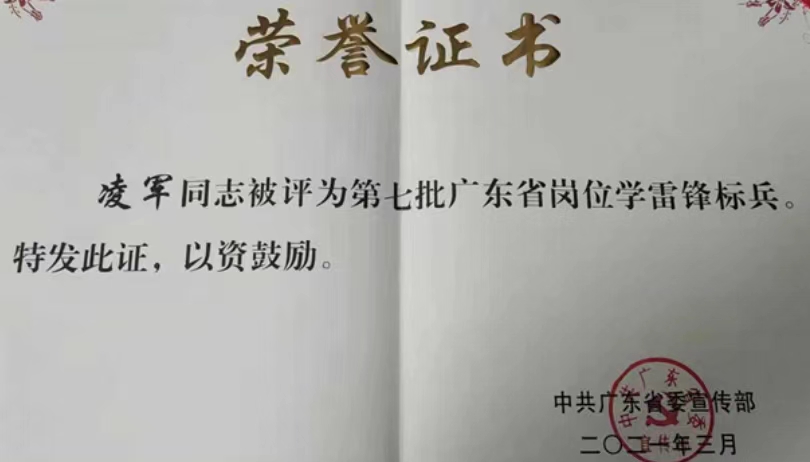 荣誉证书
凌军同志被评为第七批广东省岗位学雷锋标兵。
特发此证，以资鼓励。
中共广东省委宣传部
二〇二一年三月